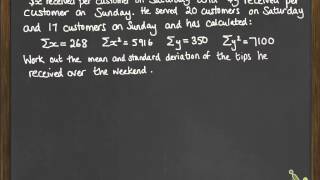 £x received per customer on Saturday and £y received per
customer on Sunday. He served 20 customers on Saturday
and 17 customers on Sunday and has calculated:
Σx = 268 Σx² = 5916 Σy = 350 Σy² = 7100
Work out the mean and standard deviation of the tips he
received over the weekend.